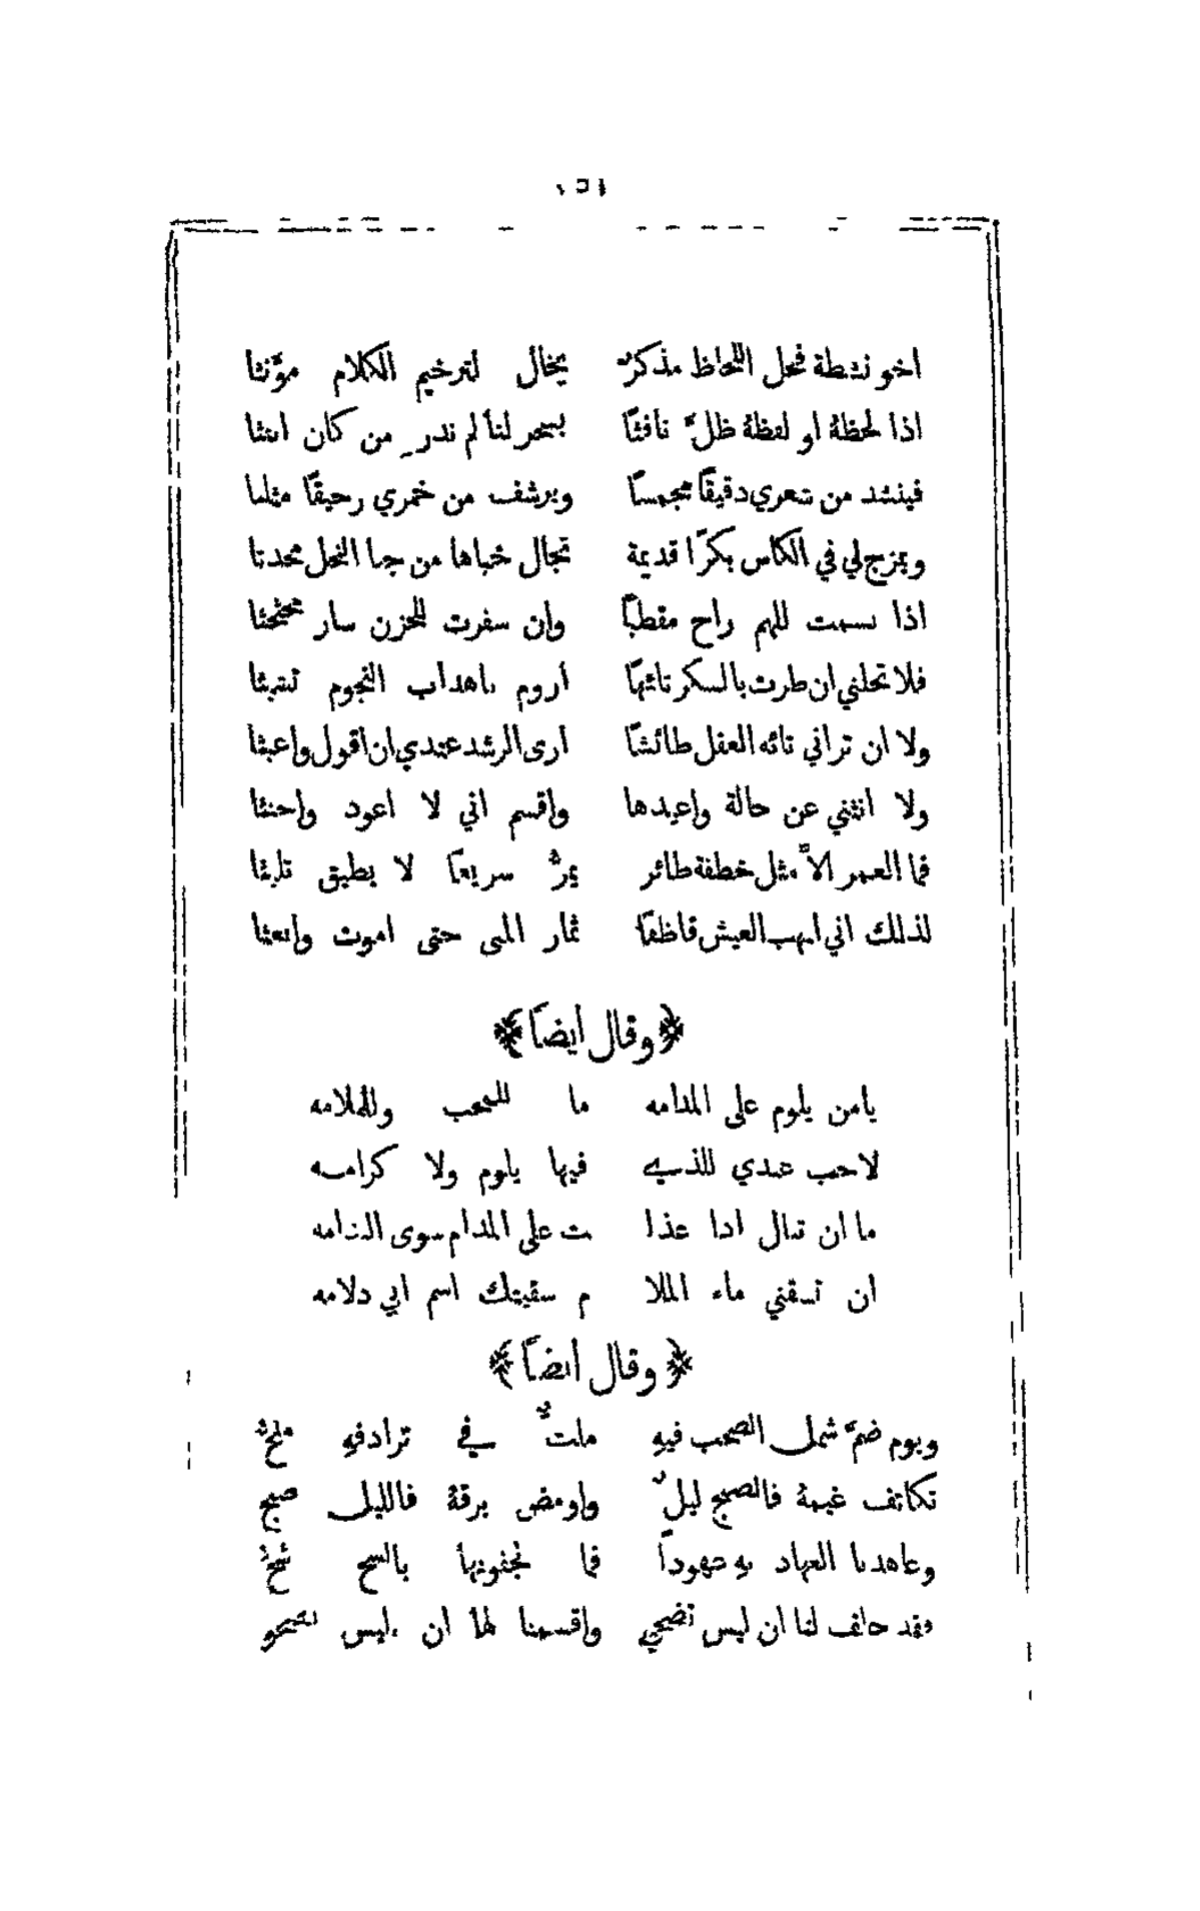 اخو نشطة فحل اللحاظ مذكرٌ يخال لترخيم الكلام مؤنثا
اذا لحظة او لفظة ظلَّ نافثًا بسحر لنا لم ندرِ من كان انفثا
فينشد من شعري دقيقًا مجمسًا ويرشف من خمري رحيقًا مثلثا
ويمزج لي في الكاس بكرًا قديمة تجال خباها من جبا النحل محدثا
اذا بسمت للهم راح مقطبًا وان سفرت للحزن سار محثحثا
فلا تحلني ان طرت بالسكر تائهًا اروم باهداب النجوم تشبثا
ولا ان تراني تائه العقل طائشًا ارى الرشد عندي ان اقول واعبثا
ولا انثني عن حالة واعيدها واقسم اني لا اعود واحنثا
فما العمر الاَّ مثل خطفة طائر يمرُّ سريعًا لا يطيق تلبثا
لذلك اني انهب العيش قاطفًا ثمار المنى حتى اموت وابعثا
﴿ وقال أيضاً ﴾
يامن يلوم على المدامه ما للمحب وللملامه
لاحب عندي للذي فيها يلوم ولا كرامه
ما ان تنال اذا عذا ت على المدام سوى الندامه
ان تسقني ماء الملا م سقيتك اسم ابي دلامه
﴿ وقال أيضاً ﴾
ويوم ضمَّ شمل الصحب فيهِ ملثٌّ في ترادفهِ ملحُّ
تكاثف غيمهُ فالصبح ليلٌ واومض برقهُ فالليل صبح
وعاهدنا العهاد بهِ عهوداً فما لجفونها بالسح شحُّ
فقد حالف لنا ان ليس تضحي واقسمنا لها ان ليس نصحو